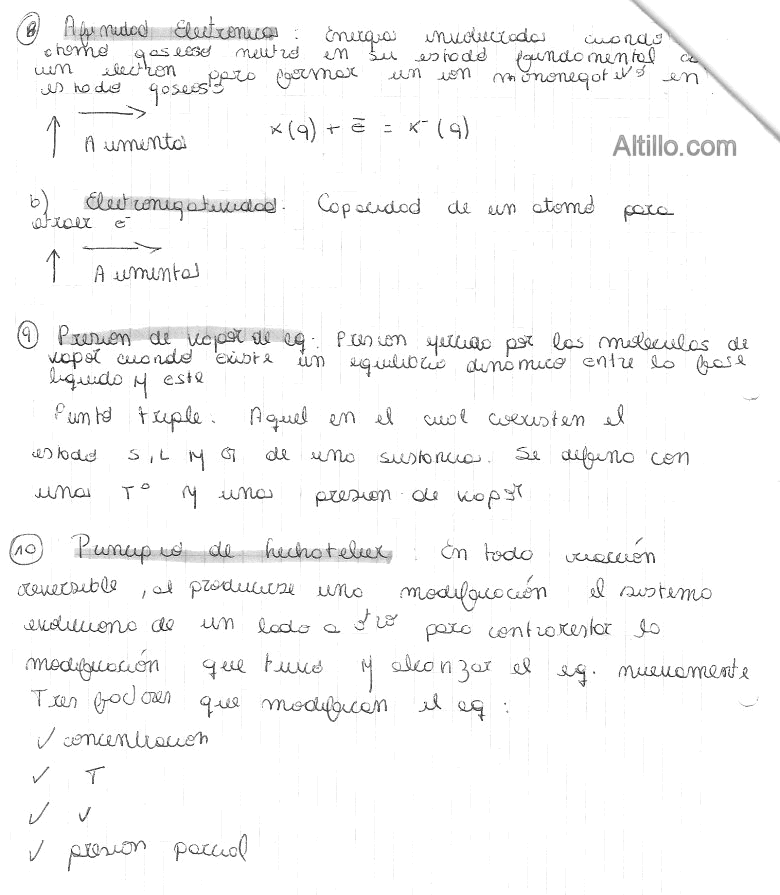 8 Afinidad Electronica: Energia involucrada cuando
atomo gaseoso neutro en su estado fundamental
un electron para formar un ion mononegativo en
estado gaseoso
↑ → Aumenta
X(g) + e̅ = X⁻(g)
Altillo.com
b) Electronegatividad. Capacidad de un atomo para
atraer e⁻
↑ → Aumenta
9 Presion de vapor de eq: Presion ejercida por las moleculas de
vapor cuando existe un equilibrio dinamico entre la fase
liquida y este
Punto triple. Aquel en el cual coexisten el
estado S, L y G de una sustancia. Se define con
una T° y una presion de vapor
10 Principio de Lechatelier: En toda reacción
reversible, al producirse una modificación el sistema
evoluciona de un lado a otro para contrarestar la
modificación que tuvo y alcanzar el eq. nuevamente
Tres factores que modifican el eq:
✓ concentracion
✓ T
✓ V
✓ presion parcial